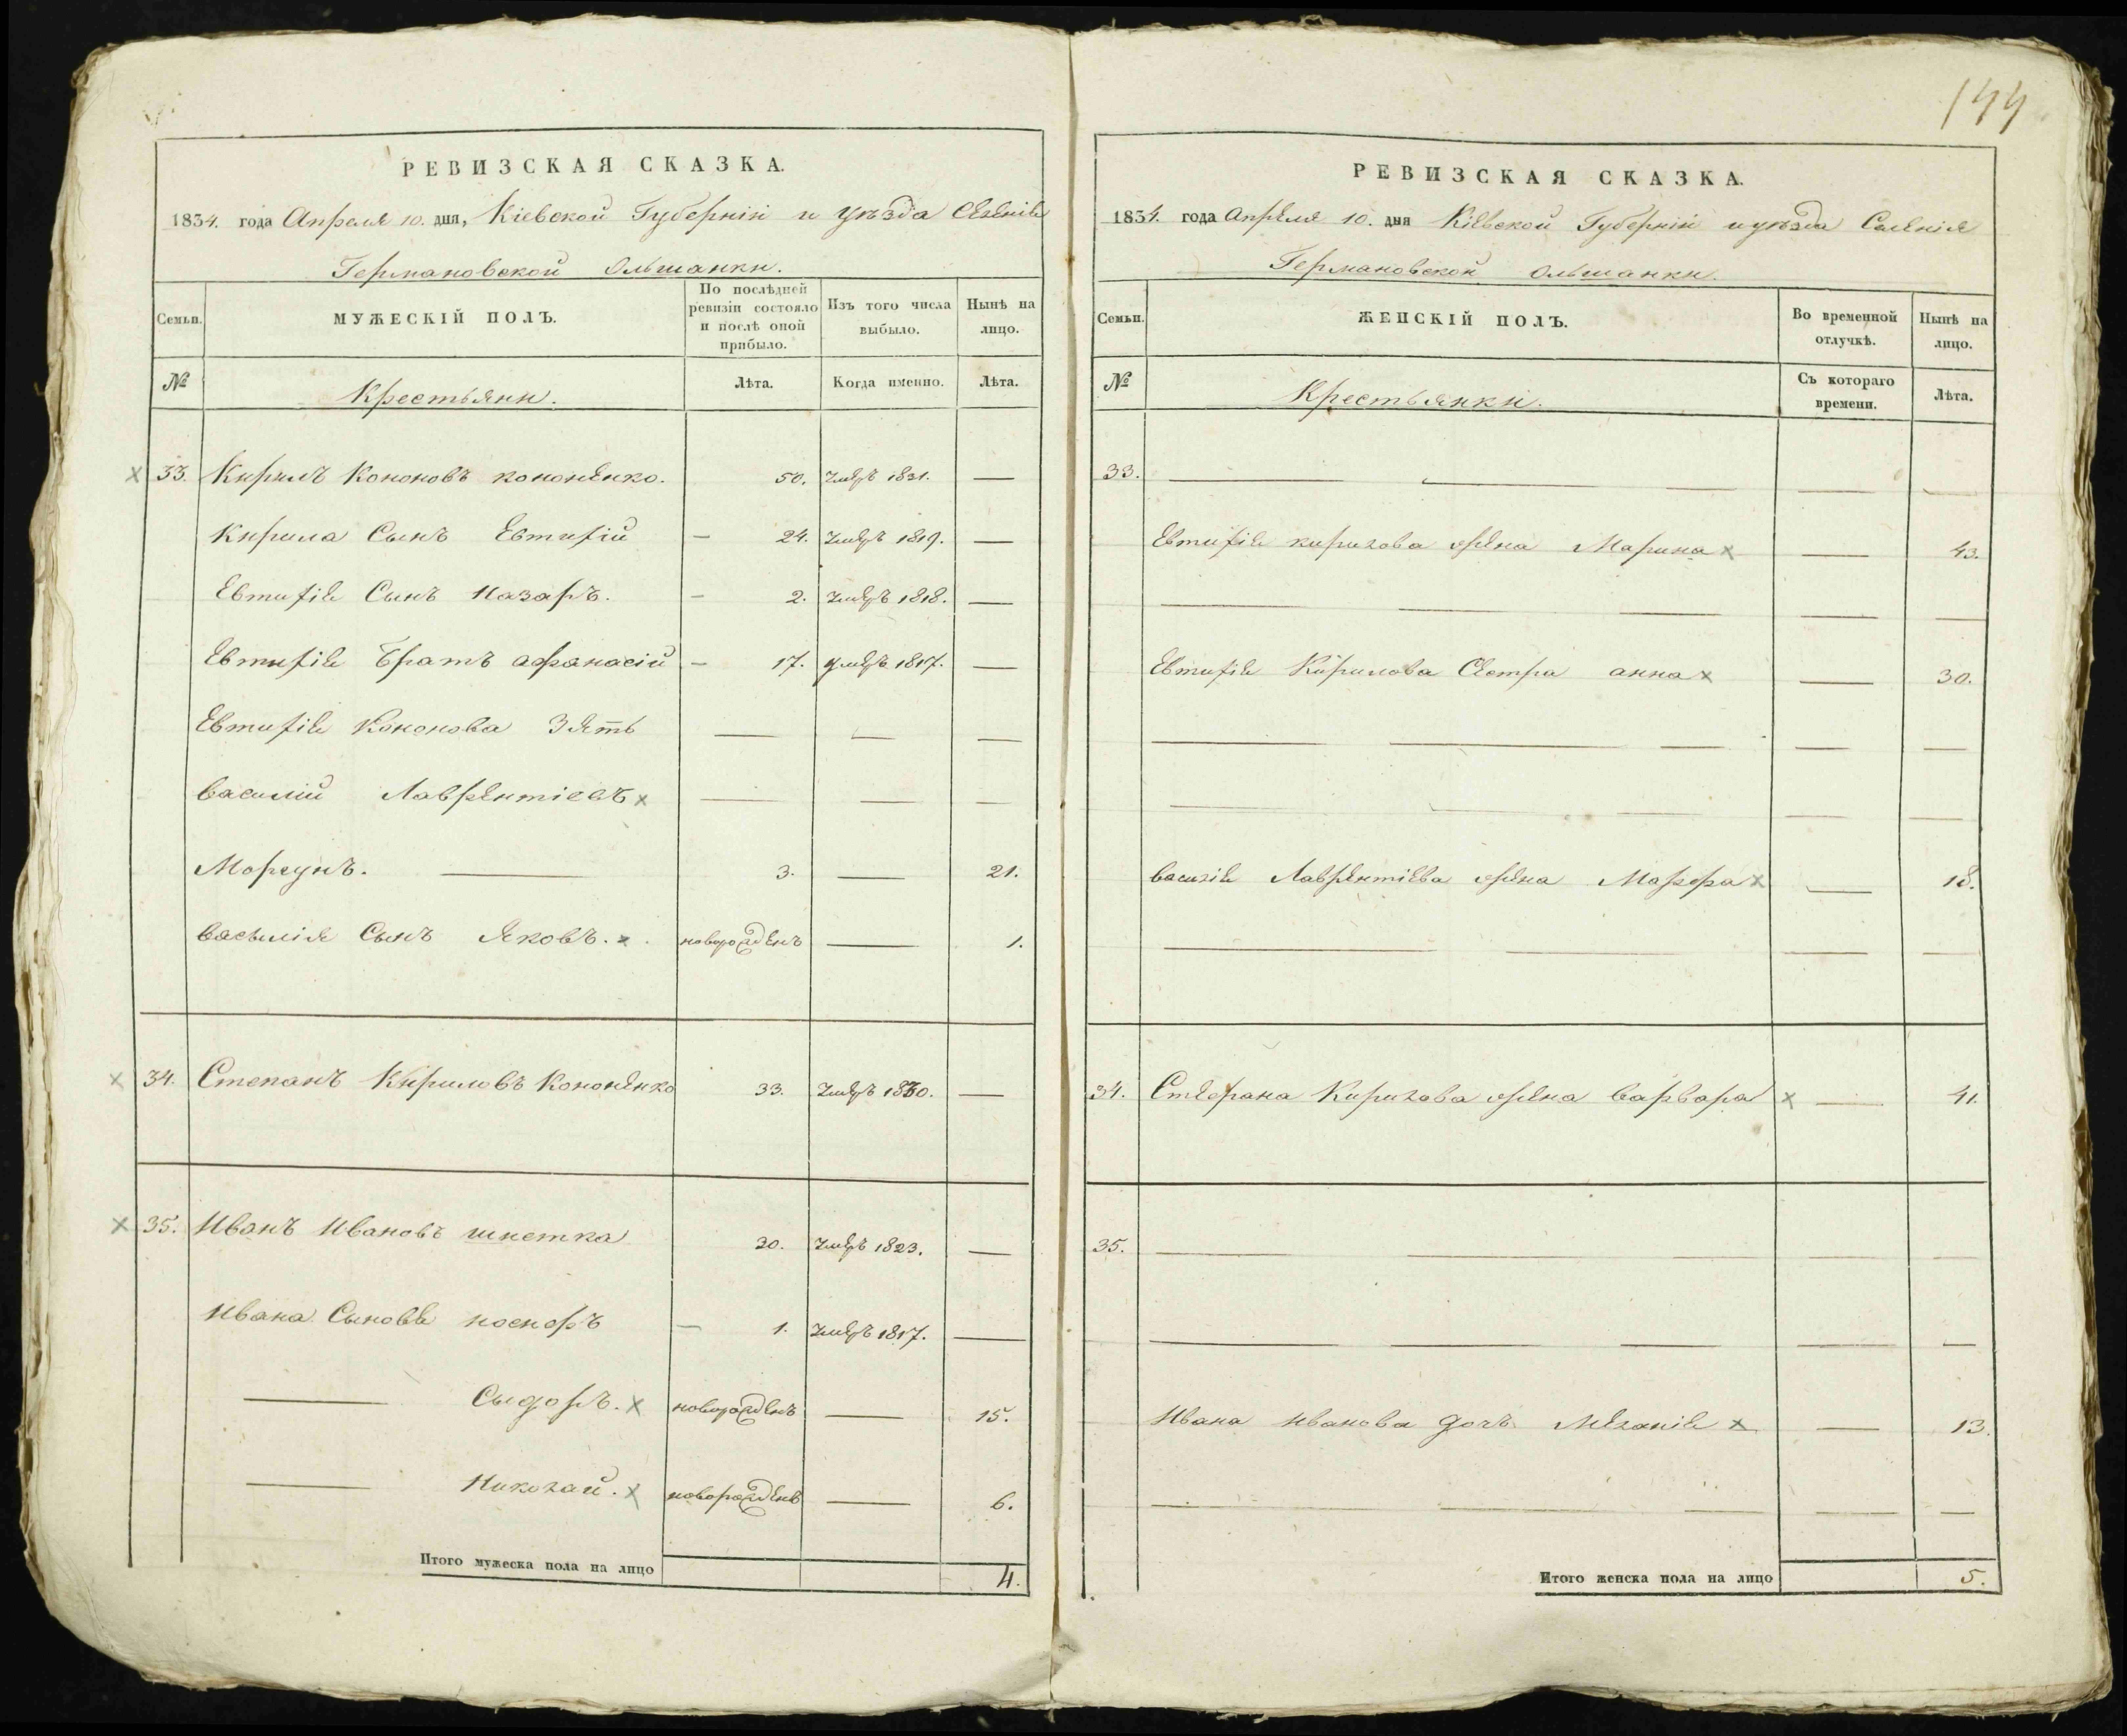 144
РЕВИЗСКАЯ СКАЗКА.
1834. года Апреля 10. дня, Кіевской Губерніи и уѣзда Селенія
Германовской Ольшанки.
Семьи.
МУЖЕСКІЙ ПОЛЪ.
По послѣдней ревизіи состояло и послѣ оной прибыло.
Изъ того числа выбыло.
Нынѣ на лицо.
№
Крестьяни.
Лѣта.
Когда именно.
Лѣта.
33. Кирилъ Кононовъ кононенко. 50. Умеръ 1831. —
Кирила Сынъ Евтифій — 24. Умеръ 1819. —
Евтифія Сынъ Назаръ. — 2. Умеръ 1818. —
Евтифія Братъ афанасій — 17. умеръ 1817. —
Евтифія Кононова Зять — — —
василій Лаврентіевъ x — — —
Моргунъ. — 3. — 21.
василія Сынъ Яковъ. x новорожденъ — 1.
34. Степанъ Кириловъ Кононенко 33. Умеръ 1830. —
35. Иванъ Ивановъ 30. Умеръ 1823. —
Ивана Сыновья — 1. Умеръ 1817. —
— Сыдоръ. x новорожденъ — 15.
— Николай. x новорожденъ — 6.
Итого мужеска пола на лицо 4.
РЕВИЗСКАЯ СКАЗКА.
1834. года Апреля 10. дня Кіевской Губерніи и уѣзда Селенія
Германовской Ольшанки.
Семьи.
ЖЕНСКІЙ ПОЛЪ.
Во временной отлучкѣ.
Нынѣ на лицо.
№
Крестьянки.
Съ котораго времени.
Лѣта.
33. — — —
Евтифія кирилова жена Марина x — 43.
Евтифія Кирилова Сестра анна x — 30.
василія Лаврентіева жена Марфа x — 18.
34. Стефана Кирилова жена варвара x — 41.
35. — — —
Ивана Иванова дочь Меланія x — 13.
Итого женска пола на лицо 5.